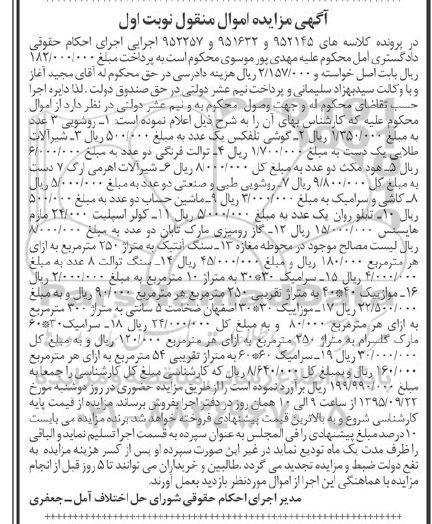 آگهی مزایده اموال منقول نوبت اول
در پرونده کلاسه های ۹۵۲۱۴۵ و ۹۵۱۶۳۲ و ۹۵۲۲۵۷ اجرایی اجرای احکام حقوقی
دادگستری آمل محکوم علیه مهدی پور موسوی محکوم است به پرداخت مبلغ ۱۸۲/۰۰۰/۰۰۰
ریال بابت اصل خواسته و ۲/۱۵۷/۰۰۰ ریال هزینه دادرسی در حق محکوم له آقای مجید آغاز
و با وکالت سیدبهزاد سلیمانی و پرداخت نیم عشر دولتی در حق صندوق دولت . لذا دایره اجرا
حسب تقاضای محکوم له و جهت وصول محکوم به و نیم عشر دولتی در نظر دارد از اموال
محکوم علیه که کارشناس بهای آن را به شرح ذیل اعلام نموده است: ۱- روشویی ۳ عدد
به مبلغ ۱/۳۵۰/۰۰۰ ریال ۲- گوشی تلفکس یک عدد به مبلغ ۵۰۰/۰۰۰ ریال ۳- شیرآلات
طلایی یک دست به مبلغ ۱/۷۰۰/۰۰۰ ریال ۴- توالت فرنگی دو عدد به مبلغ ۶/۰۰۰/۰۰۰
ریال ۵- هود مکث دو عدد به مبلغ کل ۸/۰۰۰/۰۰۰ ریال ۶- شیرآلات اهرمی ارک ۷ دست
به مبلغ کل ۹/۸۰۰/۰۰۰ ریال ۷- روشویی طبی و صنعتی دو عدد به مبلغ ۵/۰۰۰/۰۰۰ ریال
۸- کاشی و سرامیک به مبلغ ۳/۰۰۰/۰۰۰ ریال ۹- ماشین حساب دو عدد به مبلغ ۵۰۰/۰۰۰
ریال ۱۰- تابلو روان یک عدد به مبلغ ۵/۰۰۰/۰۰۰ ریال ۱۱- کولر اسپلیت ۲۴/۰۰۰ ملزم
هایسنس ۱۵/۰۰۰/۰۰۰ ریال ۱۲- گاز رومیزی مارک تابان دو عدد به مبلغ ۸/۰۰۰/۰۰۰
ریال لیست مصالح موجود در محوطه مغازه ۱۳- سنگ آنتیک به متراژ ۲۵۰ مترمربع به ازای
هر مترمربع ۱۸۰/۰۰۰ ریال و مبلغ ۴۵/۰۰۰/۰۰۰ ریال ۱۴- سنگ توالت ۸ عدد به مبلغ
۴/۰۰۰/۰۰۰ ریال ۱۵- سرامیک ۳۰*۳۰ به متراژ ۱۰ مترمربع به مبلغ ۲/۰۰۰/۰۰۰ ریال
۱۶- موزاییک ۴۰*۴۰ به متراژ تقریبی ۲۵۰ مترمربع هر مترمربع ۹۰/۰۰۰ ریال و به مبلغ
۲۲/۵۰۰/۰۰۰ ریال ۱۷- موزاییک ۳۰*۳۰ اصفهان ضخامت ۵ سانتی به متراژ ۳۰۰ مترمربع
به ازای هر مترمربع ۸۰/۰۰۰ و به مبلغ کل ۲۴/۰۰۰/۰۰۰ ریال ۱۸- سرامیک ۳۰*۶۰
مارک گلسرام به متراژ ۲۵۰ مترمربع به ازای هر مترمربع ۱۲۰/۰۰۰ ریال و به مبلغ کل
۳۰/۰۰۰/۰۰۰ ریال ۱۹- سرامیک ۶۰*۶۰ به متراژ تقریبی ۵۴ مترمربع به ازای هر مترمربع
۱۶۰/۰۰۰ ریال و بمبلغ کل ۸/۶۴۰/۰۰۰ ریال که کارشناسی مبلغ کل کارشناسی را جمعا به
مبلغ ریال برآورد نموده است را از طریق مزایده حضوری در روز دوشنبه مورخ
۱۳۹۵/۰۹/۲۲ از ساعت ۹ الی ۱۰ همان روز در دفتر اجرا بفروش برساند. مزایده از قیمت پایه
کارشناسی شروع و به بالاترین قیمت پیشنهادی فروخته خواهد شد. برنده مزایده می بایست
۱۰ درصد مبلغ پیشنهادی را فی المجلس به عنوان سپرده به قسمت اجرا تسلیم نماید و الباقی
را ظرف مدت یک ماه تودیع نماید در غیر این صورت سپرده او پس از کسر هزینه مزایده به
نفع دولت ضبط و مزایده تجدید می گردد .طالبین و خریداران می توانند تا ۵ روز قبل از انجام
مزایده با هماهنگی این اجرا از اموال موردنظر بازدید بعمل آورند.
مدیر اجرای احکام حقوقی شورای حل اختلاف آمل - جعفری